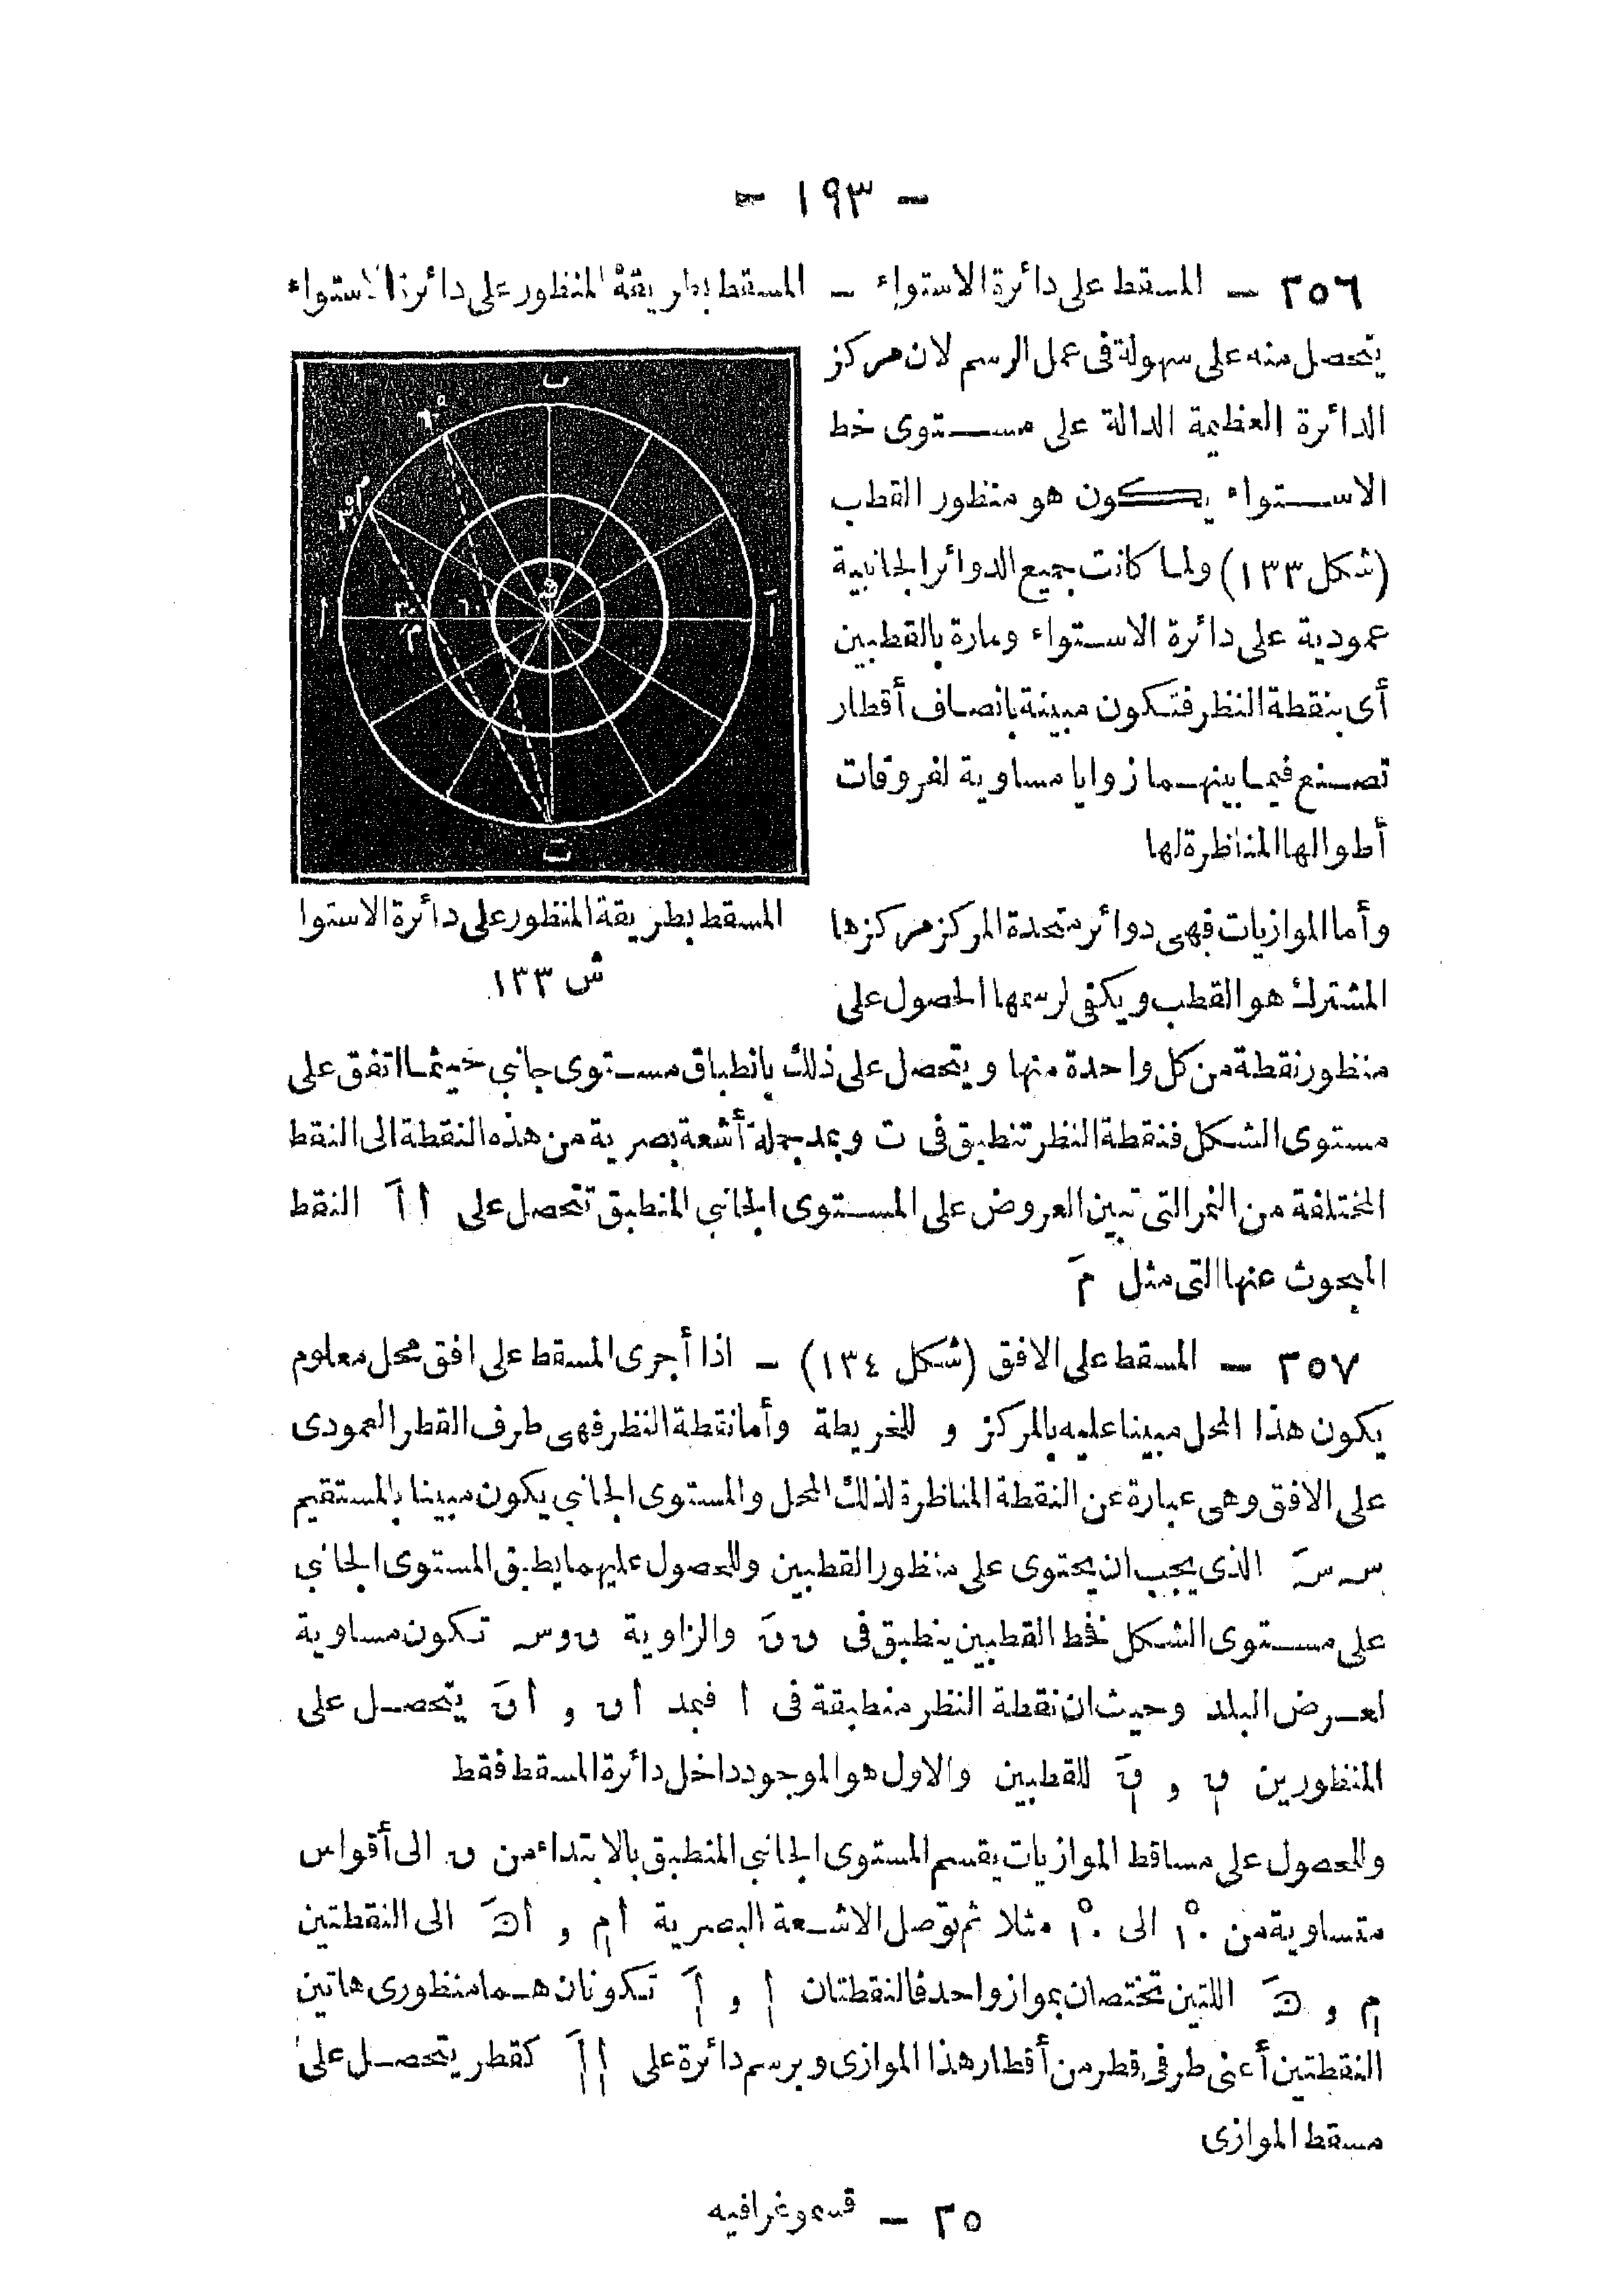 - ١٩٣ -
٢٥٦ - المسقط على دائرة الاستواء - المسقط بطريقة المنظور على دائرة الاستواء
يتحصل منه على سهولة فى عمل الرسم لان مركز
الدائرة العظيمة الدالة على مستوى خط
الاستواء يكون هو منظور القطب
(شكل ١٣٣) ولما كانت جميع الدوائر الجانبية
عمودية على دائرة الاستواء ومارة بالقطبين
أى بنقطة النظر فتكون مبينة بانصاف أقطار
تصنع فيما بينهما زوايا مساوية لفروقات
أطوالها المناظرة لها
وأما الموازيات فهى دوائر متحدة المركز مركزها
المشترك هو القطب ويكفى لرسمها الحصول على
ب
٦٠°
م
٣٠
ا
٣٠
مَ
٦٠
ق
اَ
ت
المسقط بطريقة المنظور على دائرة الاستوا
ش ١٣٣
منظور نقطة من كل واحدة منها ويتحصل على ذلك بانطباق مستوى جانبي حيثما اتفق على
مستوى الشكل فنقطة النظر تنطبق فى ت وبمد جملة أشعة بصرية من هذه النقطة الى النقط
المختلفة من النمر التى تبين العروض على المستوى الجانبي المنطبق تتحصل على ا اَ النقط
المبحوث عنها التى مثل مَ
٢٥٧ - المسقط على الافق (شكل ١٣٤) - اذا أجرى المسقط على افق محل معلوم
يكون هذا المحل مبينا عليه بالمركز و للخريطة وأما نقطة النظر فهى طرف القطر العمودى
على الافق وهى عبارة عن النقطة المناظرة لذلك المحل والمستوى الجانبي يكون مبينا بالمستقيم
س سَ الذى يجب ان يحتوى على منظور القطبين وللحصول عليهما يطبق المستوى الجانبي
على مستوى الشكل فخط القطبين ينطبق فى ق قَ والزاوية ق و س تكون مساوية
لعرض البلد وحيث ان نقطة النظر منطبقة فى ا فبمد ا ق و ا قَ يتحصل على
المنظورين ق و قَ للقطبين والاول هو الموجود داخل دائرة المسقط فقط
وللحصول على مساقط الموازيات يقسم المستوى الجانبي المنطبق بالابتداء من ق الى أقواس
متساوية من ١٠° الى ١٠° مثلا ثم توصل الاشعة البصرية ا م و ا هَ الى النقطتين
م و هَ اللتين تختصان بمواز واحد فالنقطتان ا و اَ تكونان هما منظورى هاتين
النقطتين أعنى طرفى قطر من أقطار هذا الموازى وبرسم دائرة على ا اَ كقطر يتحصل على
مسقط الموازى
٢٥ - قسموغرافيه